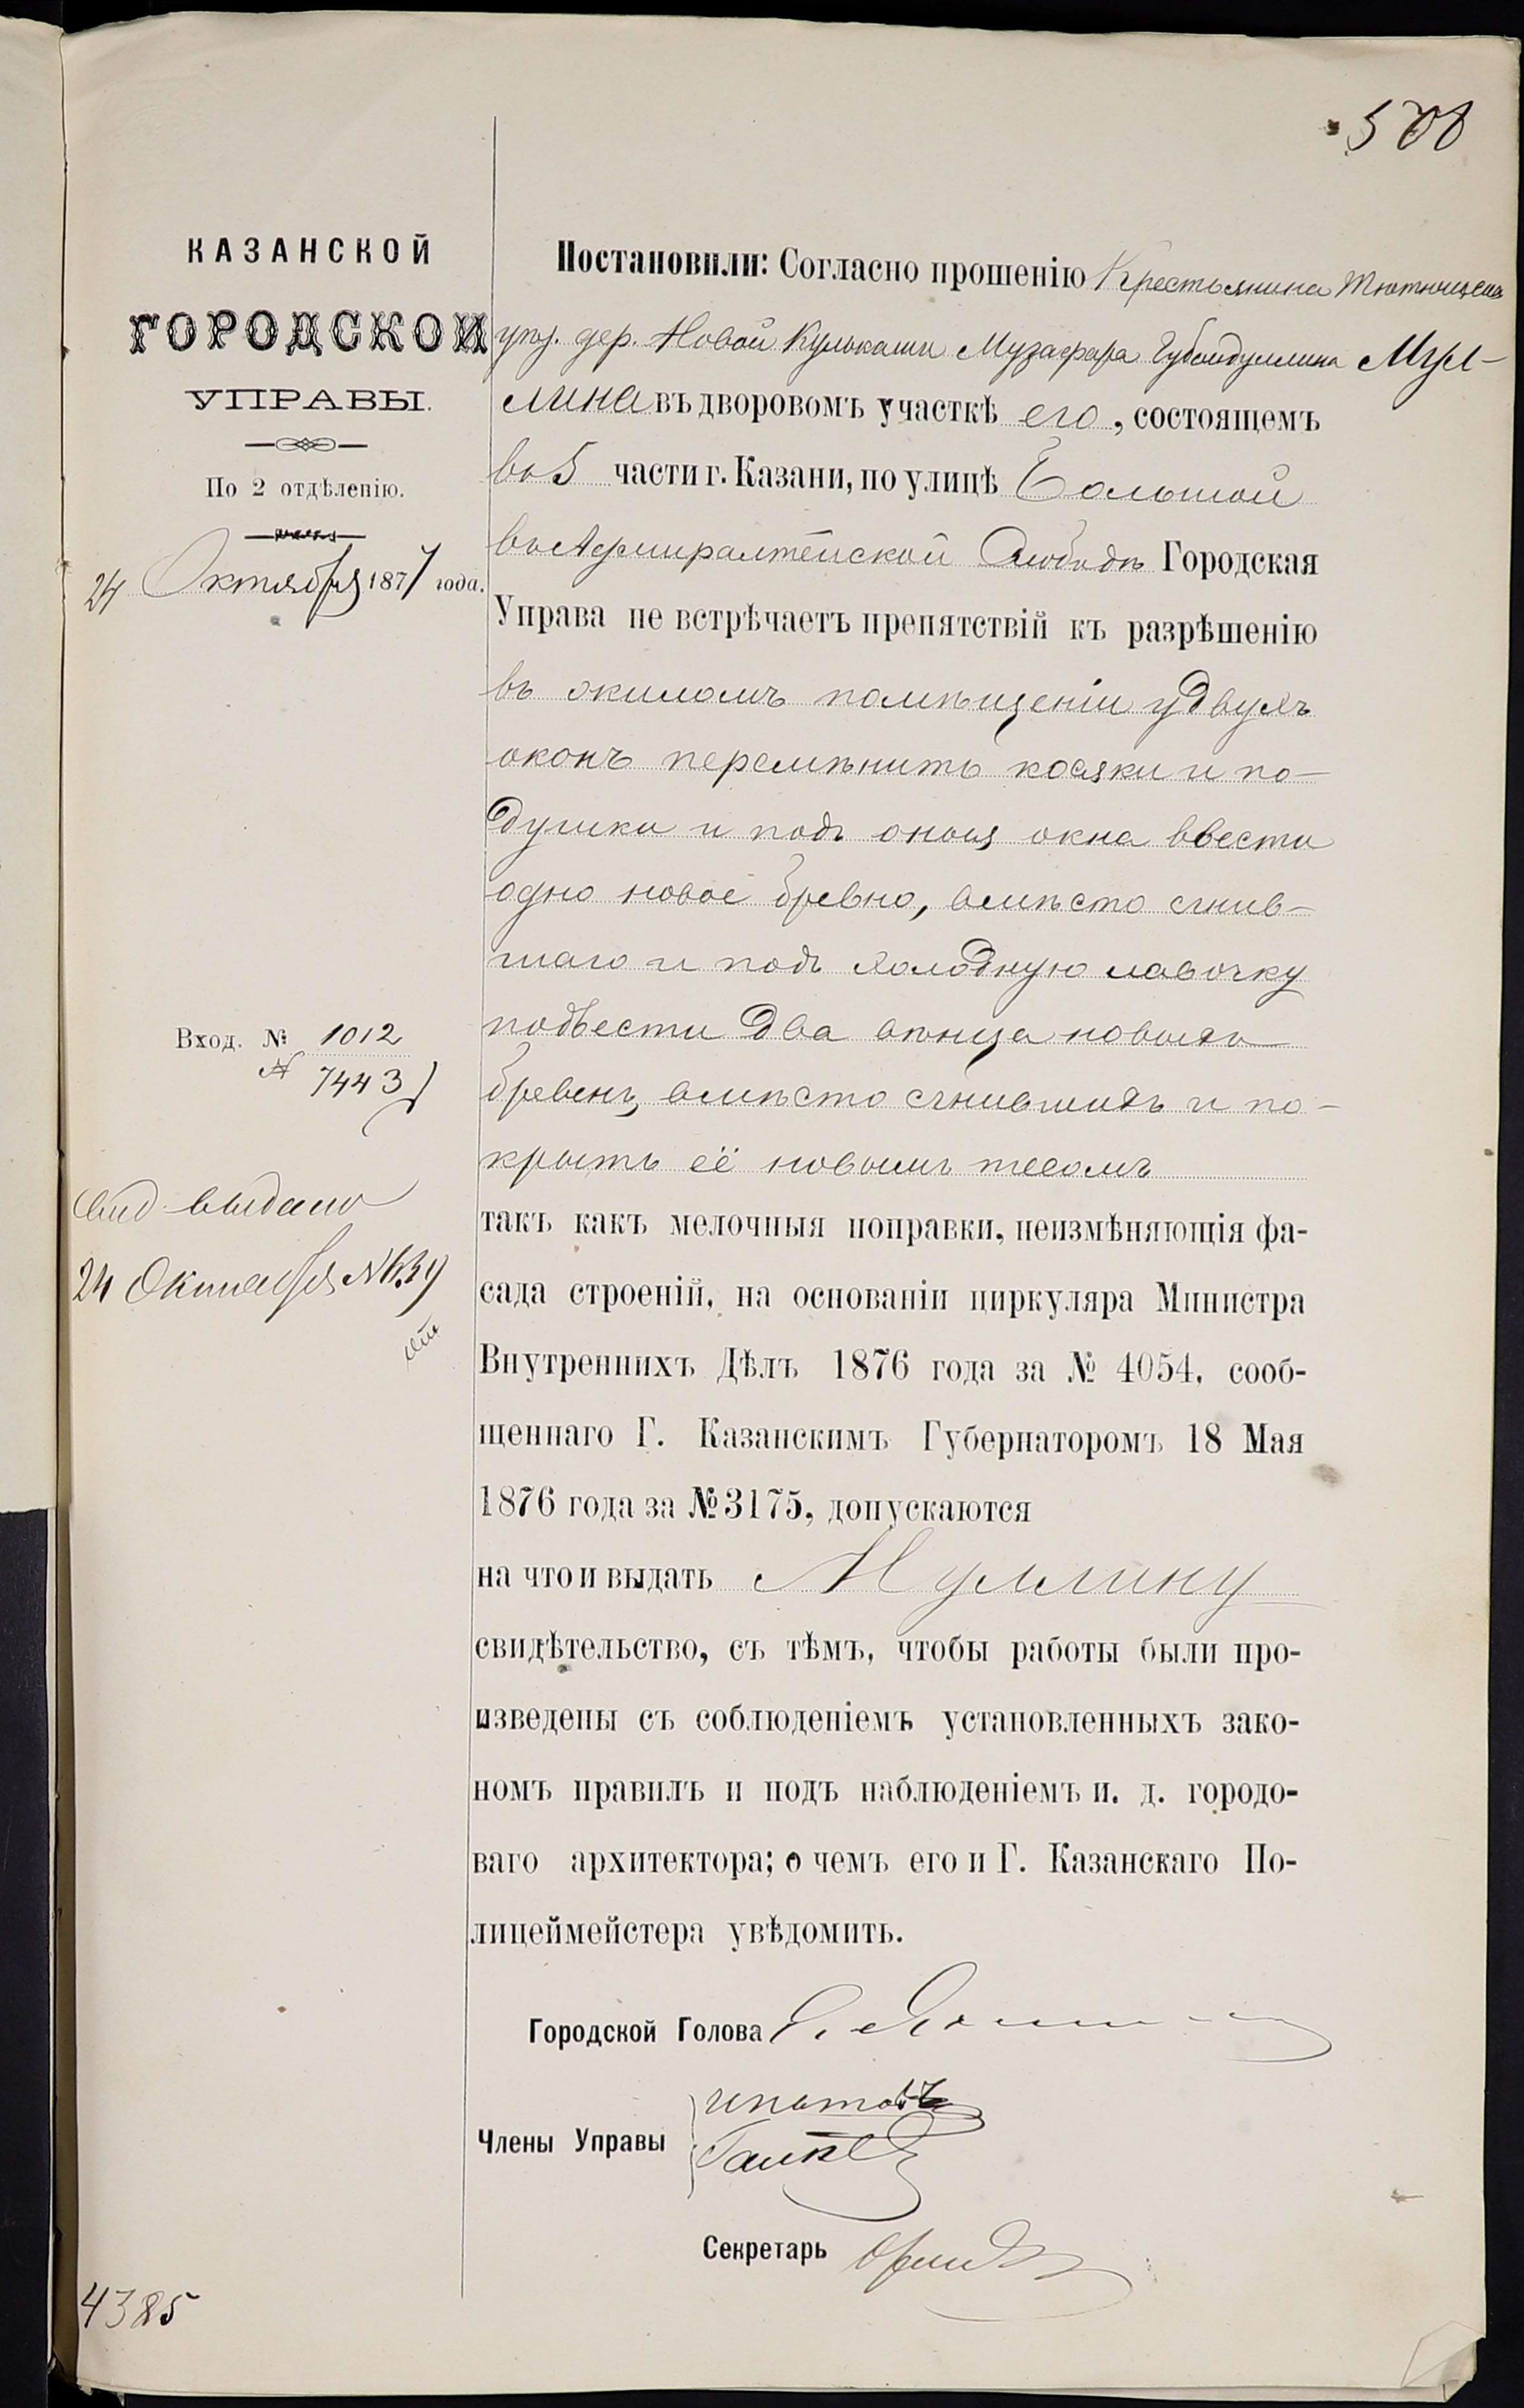 508
КАЗАНСКОЙ
ГОРОДСКОЙ
УПРАВЫ.
По 2 отдѣленію.
24 Октября 1877 года.
Вход. № 1012
№ 7443
Свид. выдано
24 Октября №
4385
Постановили: Согласно прошенію Крестьянина Тютюшскаго
уѣз. дер. Новой Кулькаши Музафара Губайдуллина Мул-
лина въ дворовомъ участкѣ его, состоящемъ
въ 5 части г. Казани, по улицѣ Большой
въ Адмиралтейской Слободѣ Городская
Управа не встрѣчаетъ препятствій къ разрѣшенію
въ жиломъ помѣщеніи у двухъ
оконъ перемѣнить косяки и по-
душки и подъ оныя окна ввести
одно новое бревно, вмѣсто сгнив-
шаго и подъ холодную лавочку
подвести два вѣнца новыхъ
бревенъ, вмѣсто сгнившихъ и по-
крыть её новымъ тесомъ
такъ какъ мелочныя поправки, неизмѣняющія фа-
сада строеній, на основаніи циркуляра Министра
Внутреннихъ Дѣлъ 1876 года за № 4054, сооб-
щеннаго Г. Казанскимъ Губернаторомъ 18 Мая
1876 года за № 3175, допускаются
на что и выдать Муллину
свидѣтельство, съ тѣмъ, чтобы работы были про-
изведены съ соблюденіемъ установленныхъ зако-
номъ правилъ и подъ наблюденіемъ и. д. городо-
ваго архитектора; о чемъ его и Г. Казанскаго По-
лицеймейстера увѣдомить.
Городской Голова
Члены Управы
Секретарь